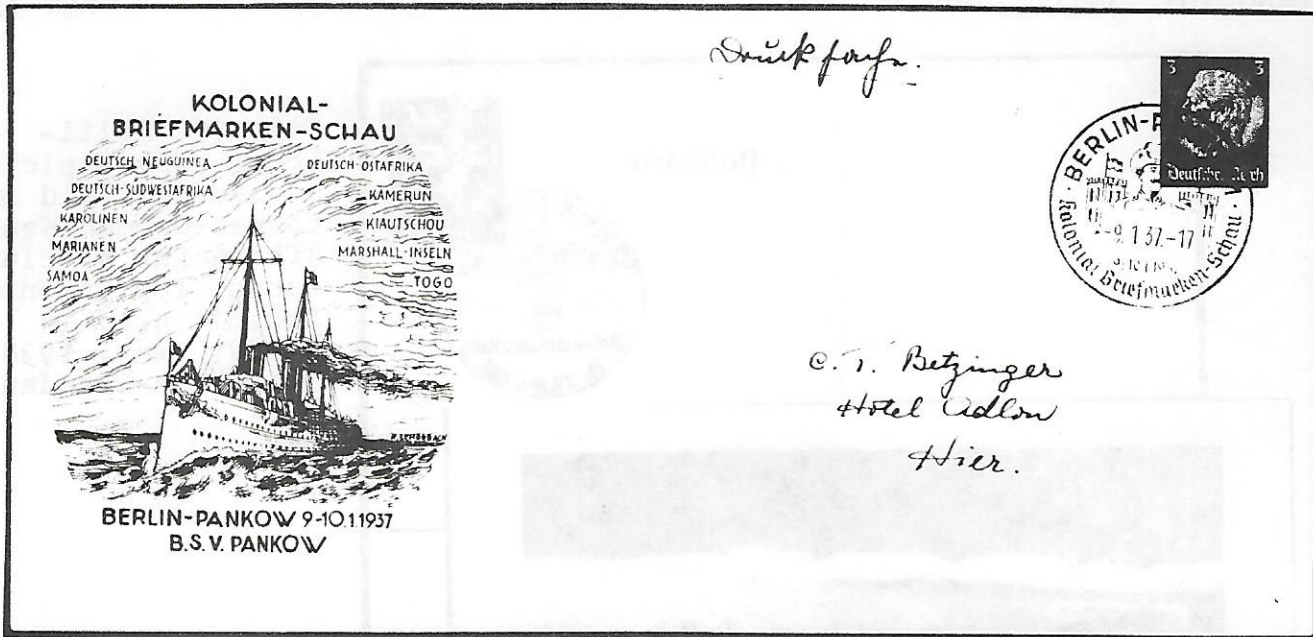 Drucksache.
KOLONIAL-
BRIEFMARKEN-SCHAU
DEUTSCH-NEUGUINEA
DEUTSCH-SÜDWESTAFRIKA
KAROLINEN
MARIANEN
SAMOA
DEUTSCH-OSTAFRIKA
KAMERUN
KIAUTSCHOU
MARSHALL-INSELN
TOGO
BERLIN-PANKOW 9-10.1.1937
B.S.V. PANKOW
3 3
Deutsches Reich
BERLIN-P
-9.1.37.-17
Kolonial Briefmarken-Schau
C. T. Betzinger
Hotel Adlon
Hier.